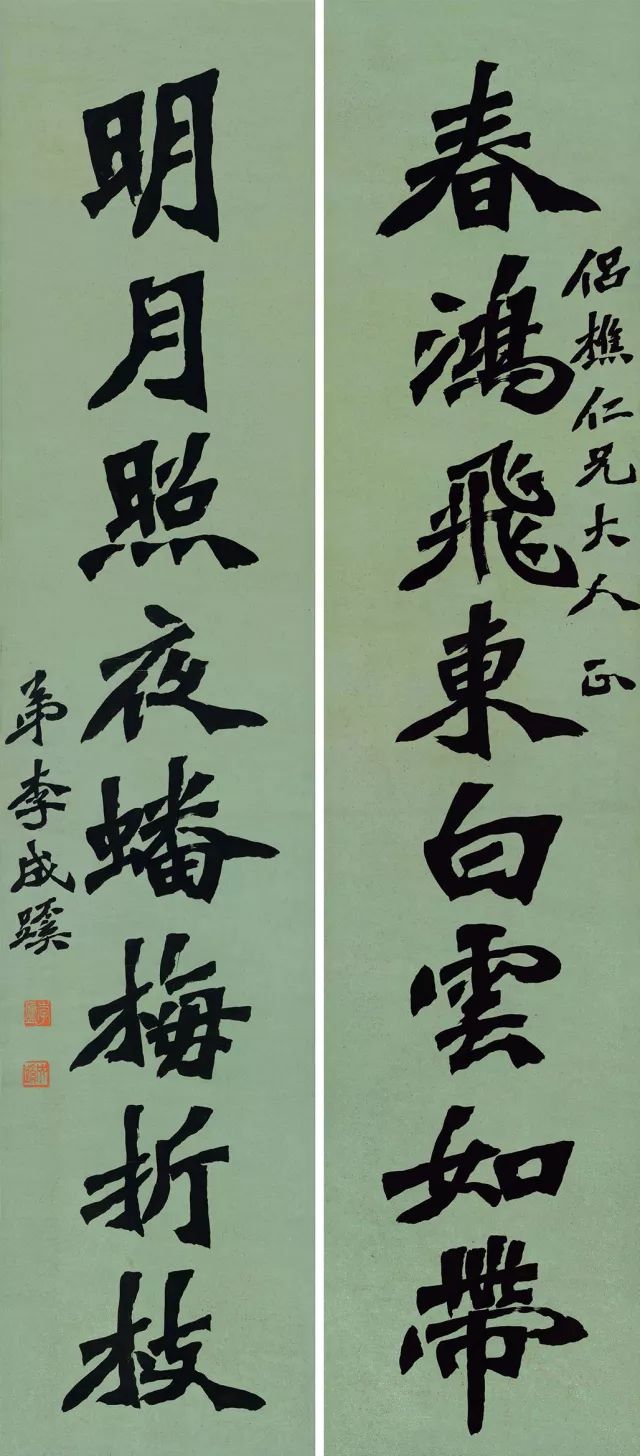 春鴻飛東白雲如帶
侣樵仁兄大人正
明月照夜蟠梅折枝
弟李成蹊